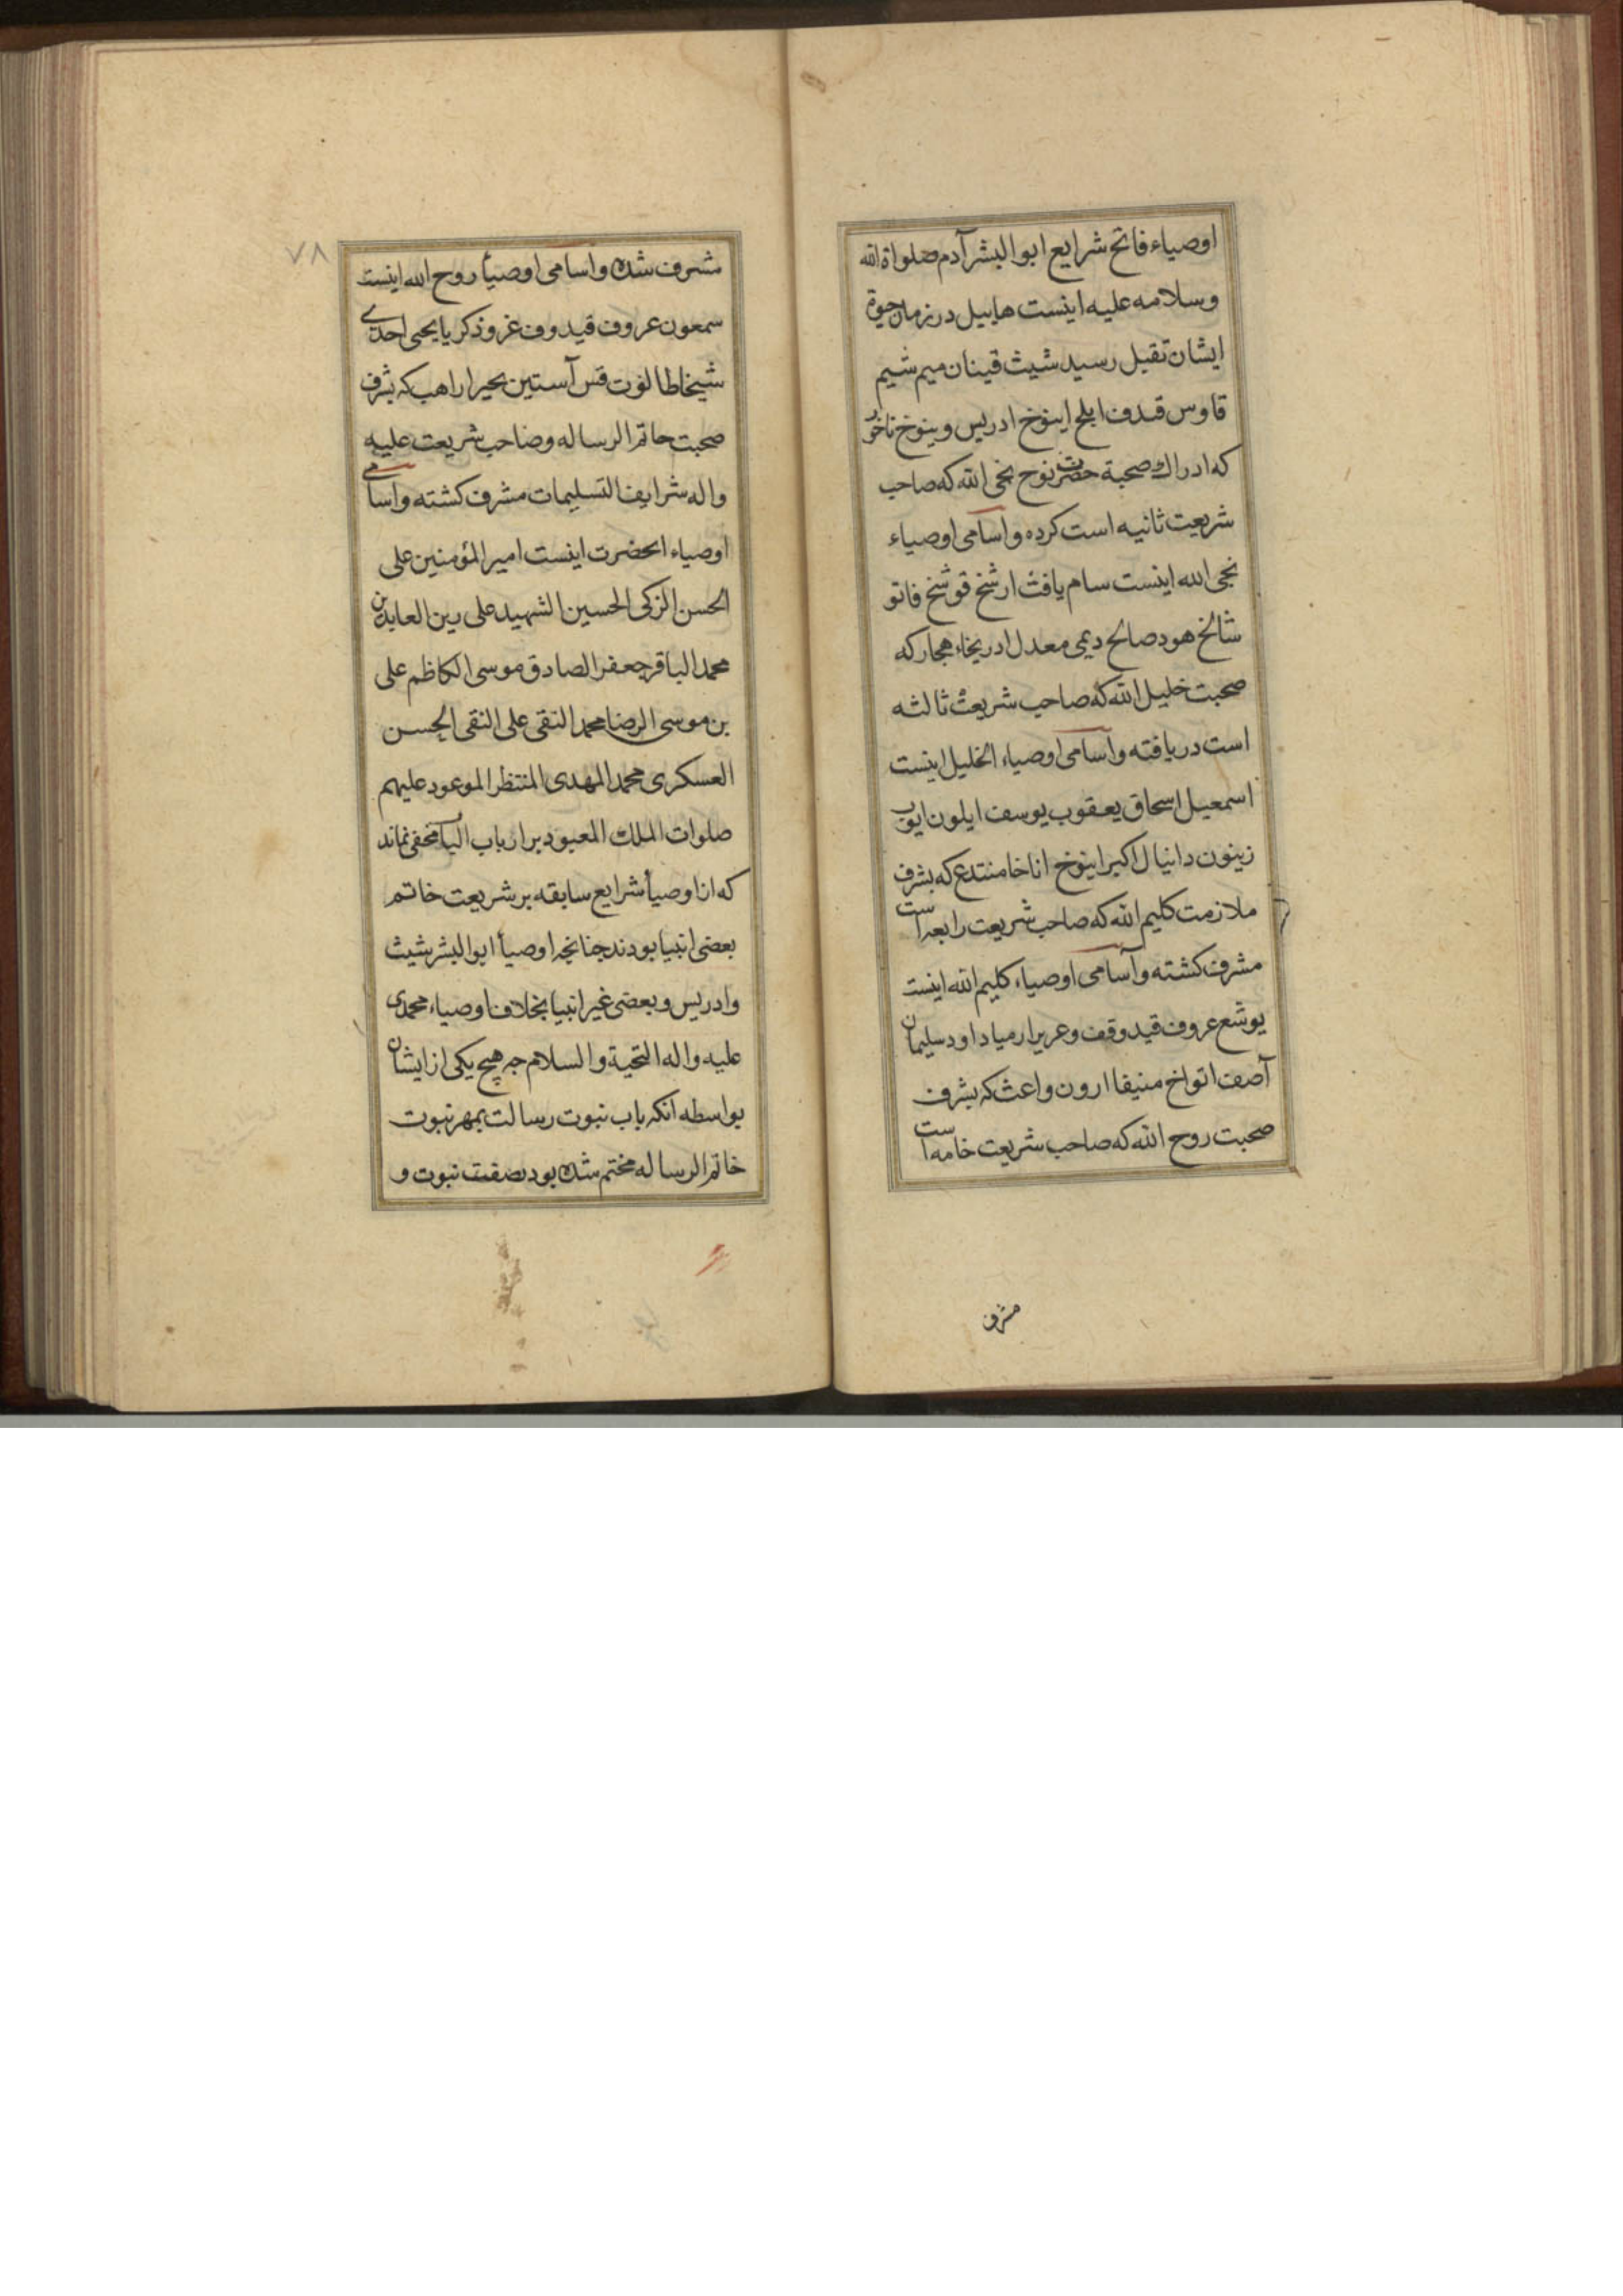 اوصیاء فاتح شرایع ابوالبشر آدم صلواة الله
وسلامه علیه اینست هابیل در زمان حیوة
ایشان تقبل رسید شیث قینان میم شیم
قاوس قیدف ایلح اینوخ ادریس وینوخ ناخور
که ادراک صحبة حضرت نوح نجی الله که صاحب
شریعت ثانیه است کرده واسامی اوصیاء
نجی الله اینست سام یافث ارشخ قوشخ فاتو
شالخ هود صالح دیمی معدل ادریخاء هجار که
صحبت خلیل الله که صاحب شریعت ثالثه
است دریافته واسامی اوصیاء الخلیل اینست
اسمعیل اسحاق یعقوب یوسف ایلون ایوب
زینون دانیال اکبر اینوخ اناخا منتدع که بشرف
ملازمت کلیم الله که صاحب شریعت رابعه است
مشرف کشته وآسامی اوصیاء کلیم الله اینست
یوشع عروف قیدوقف وعریر ارمیا داود سلیمان
آصف اتواخ منیقا ارون واعث که بشرف
صحبت روح الله که صاحب شریعت خامه است
مشرف
٧٨
مشرف شده واسامی اوصیأ روح الله اینست
سمعون عروف قیدوف غروذکریا یحیی احدی
شیخا طالوت قس آستین بحیرا راهب که بشرف
صحبت خاتم الرساله وصاحب شریعت علیه
واله شرایف التسلیمات مشرف کشته واسامی
اوصیاء انحضرت اینست امیر المؤمنین علی
الحسن الزکی الحسین الشهید علی زین العابدین
محمد الباقر جعفر الصادق موسی الکاظم علی
بن موسی الرضا محمد التقی علی النقی الحسن
العسکری محمد المهدی المنتظر الموعود علیهم
صلوات الملک المعبود بر ارباب الباب مخفی نماند
که از اوصیأ شرایع سابقه بر شریعت خاتم
بعضی انبیا بودند جنانجه اوصیأ ابوالبشر شیث
وادریس وبعضی غیر انبیا بخلاف اوصیاء محمدی
علیه واله التحیة والسلام جه هیچ یکی از ایشان
بواسطه انکه باب نبوت رسالت بمهر نبوت
خاتم الرساله مختم شده بود بصفت نبوت و